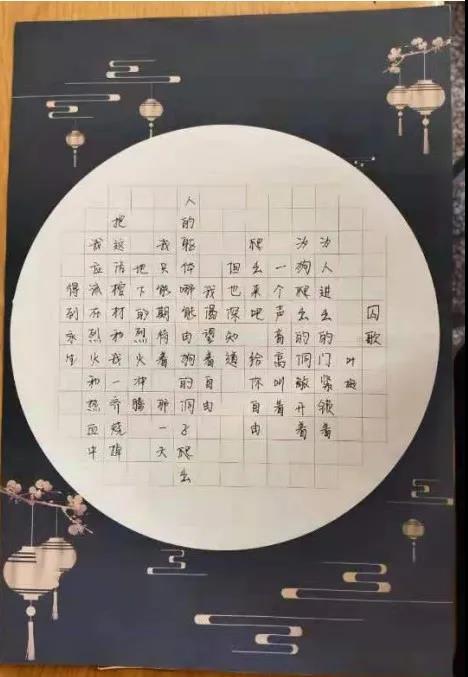 囚歌
叶挺
为人进出的门紧锁着
为狗爬出的洞敞开着
一个声音高叫着
爬出来吧给你自由
但也深知道
我渴望着自由
人的躯体哪能由狗的洞子爬出
我只能期待着那一天
地下的烈火冲腾
把这活棺材和我一齐烧掉
我应该在烈火和热血中
得到永生